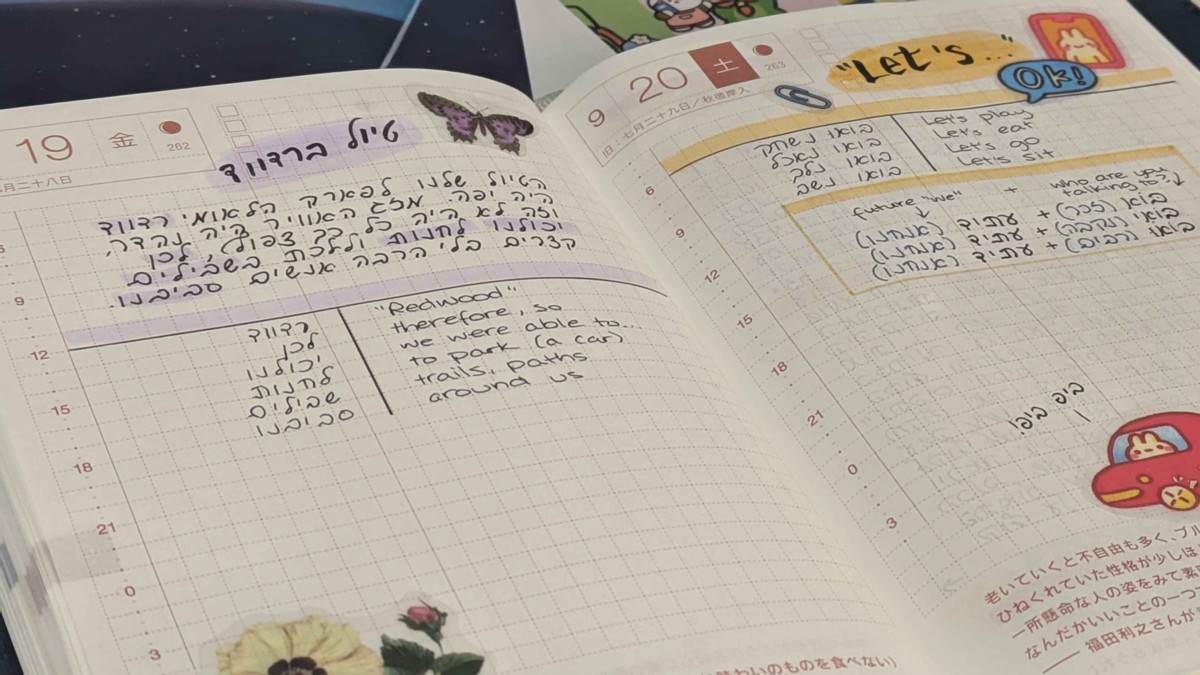 19 金
262
月二十八日
טיול ברדווד
הטיול שלנו לפארק הלאומי רדווד
היה יפה. מזג האוויר היה נהדר,
וזה לא היה כל כך צפוף, לכן
יכולנו לחנות וללכת בשבילים
קצרים בלי הרבה אנשים סביבנו.
רדווד
לכן
יכולנו
לחנות
שבילים
סביבנו
"Redwood"
therefore, so
we were able to...
to park (a car)
trails, paths
around us
9
12
15
18
21
0
3
味わいのものを食べない)
9 20 土
263
旧:七月二十九日/秋彼岸入
"Let's..."
Ok!
בואו נשחק
בואו נאכל
בואו נלך
בואו נשב
Let's play
Let's eat
Let's go
Let's sit
future "we" + who are you
talking to?
בוא (זכר) + עתיד (אנחנו)
בואי (נקבה) + עתיד (אנחנו)
בואו (רבים) + עתיד (אנחנו)
6
9
12
15
18
21
0
3
ביפ ביפ!
老いていくと不自由も多く、ブル
ひねくれていた性格が少しほ
一所懸命な人の姿をみて素
なんだかいいことの一つ
── 福田利之さんが